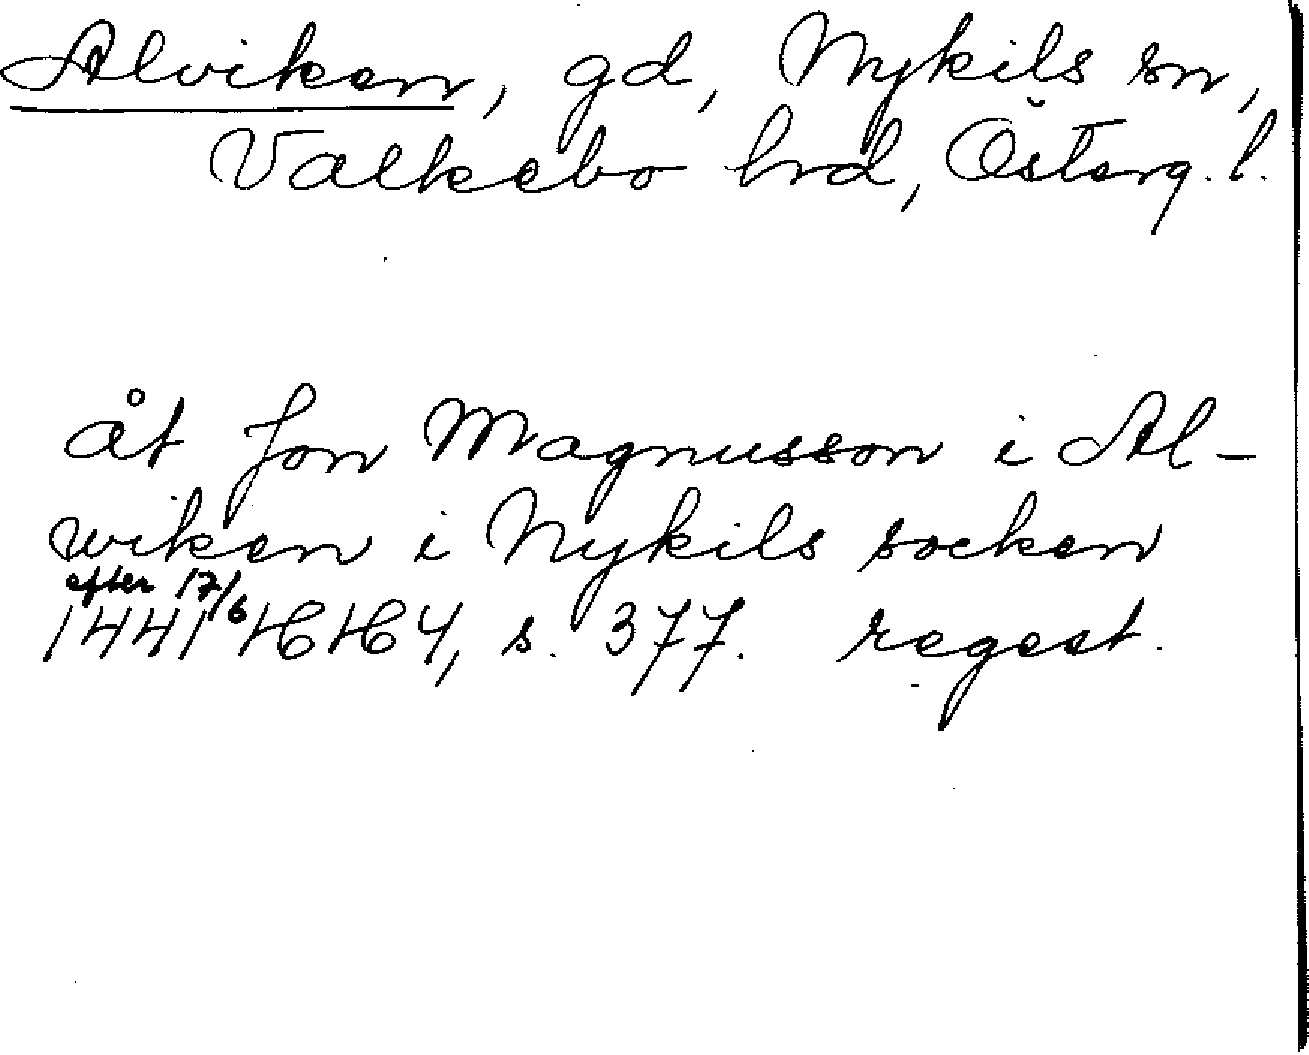 Alviken, gd, Nykils sn,
Valkebo hrd, Österg. l.
åt Jon Magnusson i Al-
wiken i Nykils socken
efter 17/6
1441 HH 4, s. 377. regest.